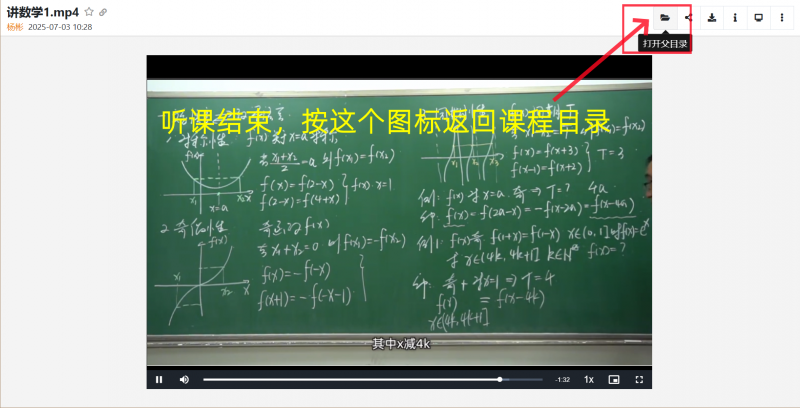 讲数学1.mp4
杨彬 2025-07-03 10:28
打开父目录
听课结束，按这个图标返回课程目录
f(x)关于x=a对称
若x₁+x₂/2=a 则f(x₁)=f(x₂)
f(x)=f(2-x)
f(2-x)=f(4+x)
f(x) x=1
x=a
2. 奇函数
f(x)
若x₁+x₂=0 则f(x₁)=-f(x₂)
f(x)=-f(-x)
f(x+1)=-f(-x-1)
f(x)=f(x+3)
f(x-1)=f(x+2)
T=3
例: f(x)对x=a. 奇⇒T=? 4a
f(x)=f(2a-x)=-f(x-2a)=f(x-4a)
例1: f(x)奇 f(1+x)=f(1-x) x∈(0,1]时f(x)=eˣ
求x∈(4k,4k+1] k∈N f(x)=?
奇+对x=1⇒T=4
f(x) = f(x-4k)
x∈(4k,4k+1]
其中x减4k
-1:32 1x